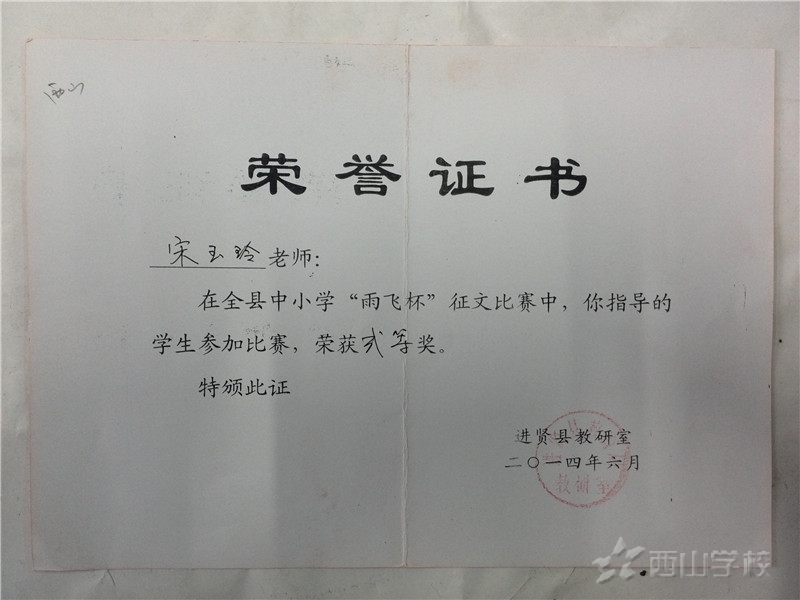 西山
荣誉证书
宋玉玲老师：
在全县中小学“雨飞杯”征文比赛中，你指导的
学生参加比赛，荣获弍等奖。
特颁此证
进贤县教研室
二〇一四年六月
教研室
西山学校